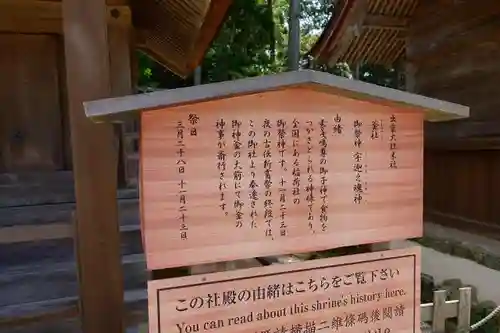 出雲大社末社
釜社
御祭神 宇迦之魂神
由緒
素戔嗚尊の御子神で食物を
つかさどられる神様であり、
全国にある稲荷社の
御祭神です。十一月二十三日
夜の古伝新嘗祭の終段では、
この御社より奉遷された
御神釜の大前にて御釜の
神事が斎行されます。
祭日
三月二十八日 十一月二十三日
この社殿の由緒はこちらをご覧下さい
You can read about this shrine's history here.